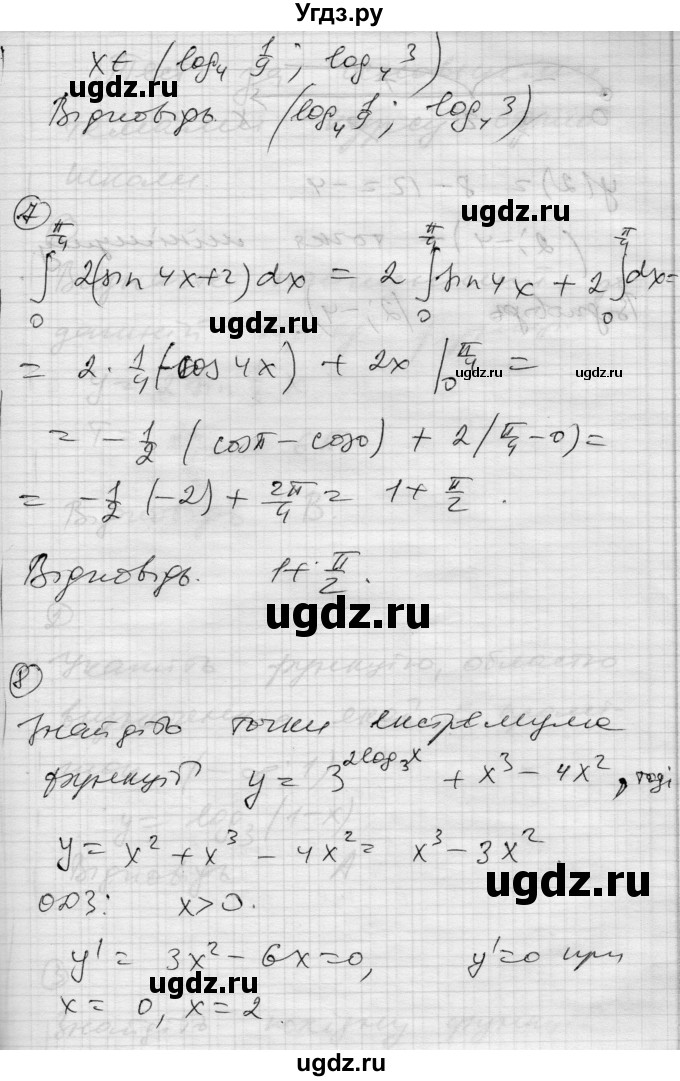 Угдз.ру
x ∈ (log₄ 1/9 ; log₄ 3)
Відповідь. (log₄ 1/9 ; log₄ 3)
ugdz.ru ugdz.ru
⑦
∫₀^{π/4} 2(sin 4x + 2) dx = 2 ∫₀^{π/4} sin 4x + 2 ∫₀^{π/4} dx =
ugdz.ru
= 2 · 1/4 (-cos 4x) + 2x |₀^{π/4} =
ugdz.ru ugdz.ru
= - 1/2 (cos π - cos 0) + 2 (π/4 - 0) =
= - 1/2 (-2) + 2π/4 = 1 + π/2 .
ugdz.ru
Відповідь. 1 + π/2 .
ugdz.ru
⑧
Знайдіть точки екстремума
функції y = 3^{2log₃x} + x³ - 4x², тоді
ugdz.ru
y = x² + x³ - 4x² = x³ - 3x²
ugdz.ru
ОДЗ: x > 0.
y' = 3x² - 6x = 0, y' = 0 при
ugdz.ru
x = 0, x = 2
ugdz.ru